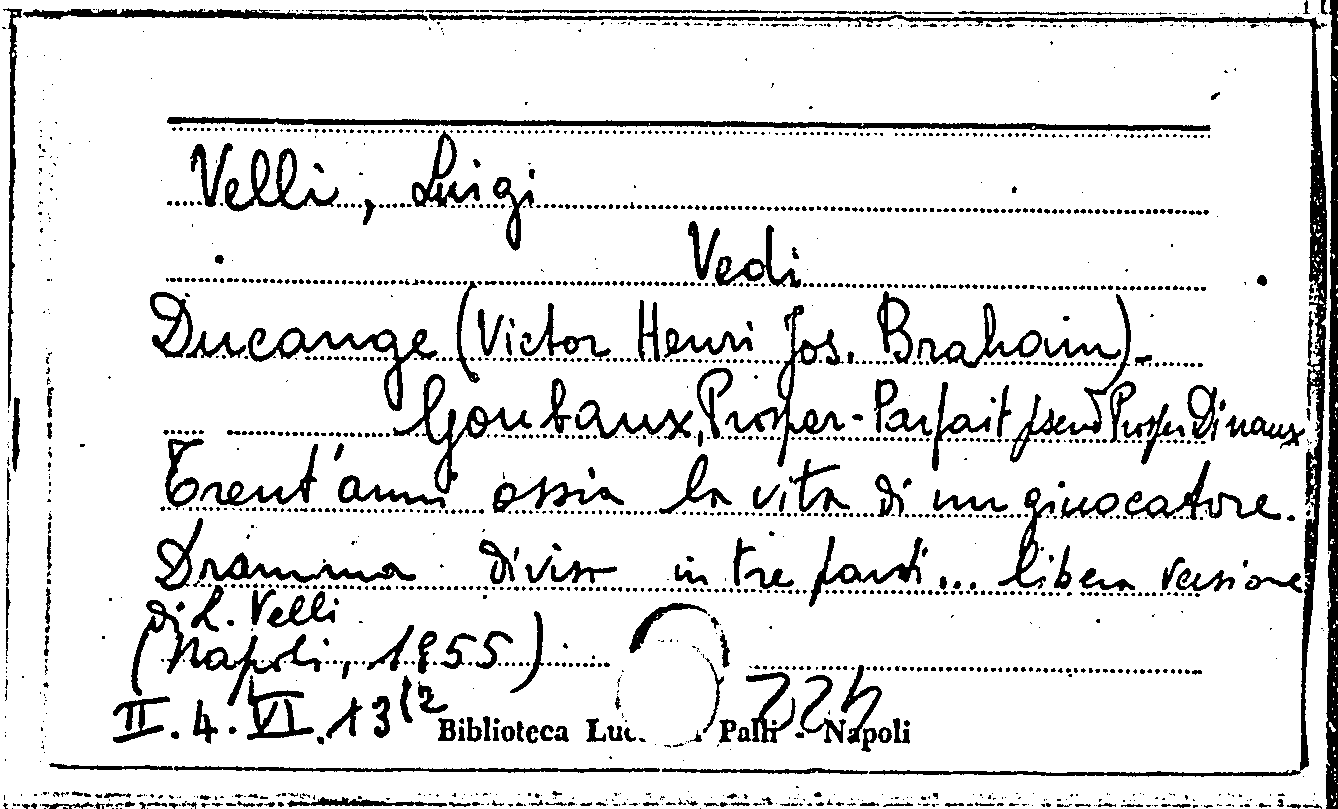 Velli, Luigi
Vedi
Ducange (Victor Henri Jos. Brahain)-
Goubaux, Prosper-Parfait pseud Prosper Dinaux
Trent'anni ossia la vita di un giuocatore.
Dramma diviso in tre parti... libera versione
di L. Velli
(Napoli, 1855)
II.4.VI.13(2
224
Biblioteca Luc Palli - Napoli